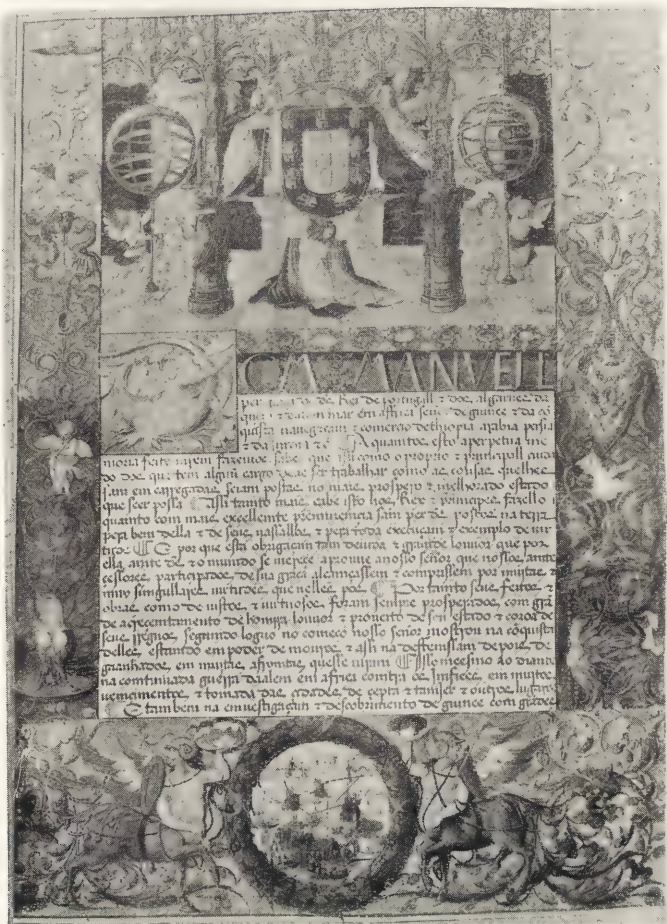 DOM MANVELL
per graça de Rei de portugall & dos algarves da
quem & dalem mar em affrica senor de guinee & da cõ
quista navegaçam & comercio dethiopia arabia persia
& da A quamtos esto a perpetua me
moria feito virem fazemos saber que asi como o proprio & primcipall cuid
do dos que tem algum cargo deue ser trabalhar como as cousas quelhes
sam em carregadas seiam postas no mais prospero & melhorado estado
que seer possa Assi tamto mais cabe isto hos Reis & principes fazello
quamto com mais excellemte preminencia sam per ds postos na terra
pera bem della & de seus vassallos & pera toda execuçam & exemplo de vir
tudes E por que esta obrigaçam tam deuida & gramde louuor que por
ella amte ds & o mundo se merece aprouue a nosso señor que nossos ante
cessores participados de sua graça alcamçassem & comprissem por muitas &
muy simgullares virtudes que nelles pos Por tamto seus feitos &
obras como de iustos & virtuosos foram sempre prosperados com
de acrecentamento de homrra louuor & proueito de seu estado & coroa de
seus regnos segumdo logno no comeco nosso señor mostrou na cõquista
delles estamdo em poder de mouros & assi na desemssam depois de
gramhados em muitas afromtas que sse uiram Isso meesmo ao diante
na comtinuada guerra daalem em africa comtra os Imfieees em muitos
vemcimentos & tomada das cidades de cepta & tamjer & outros lugares
E tambem na emvestigaçam & descobrimento de guinee com gramdes